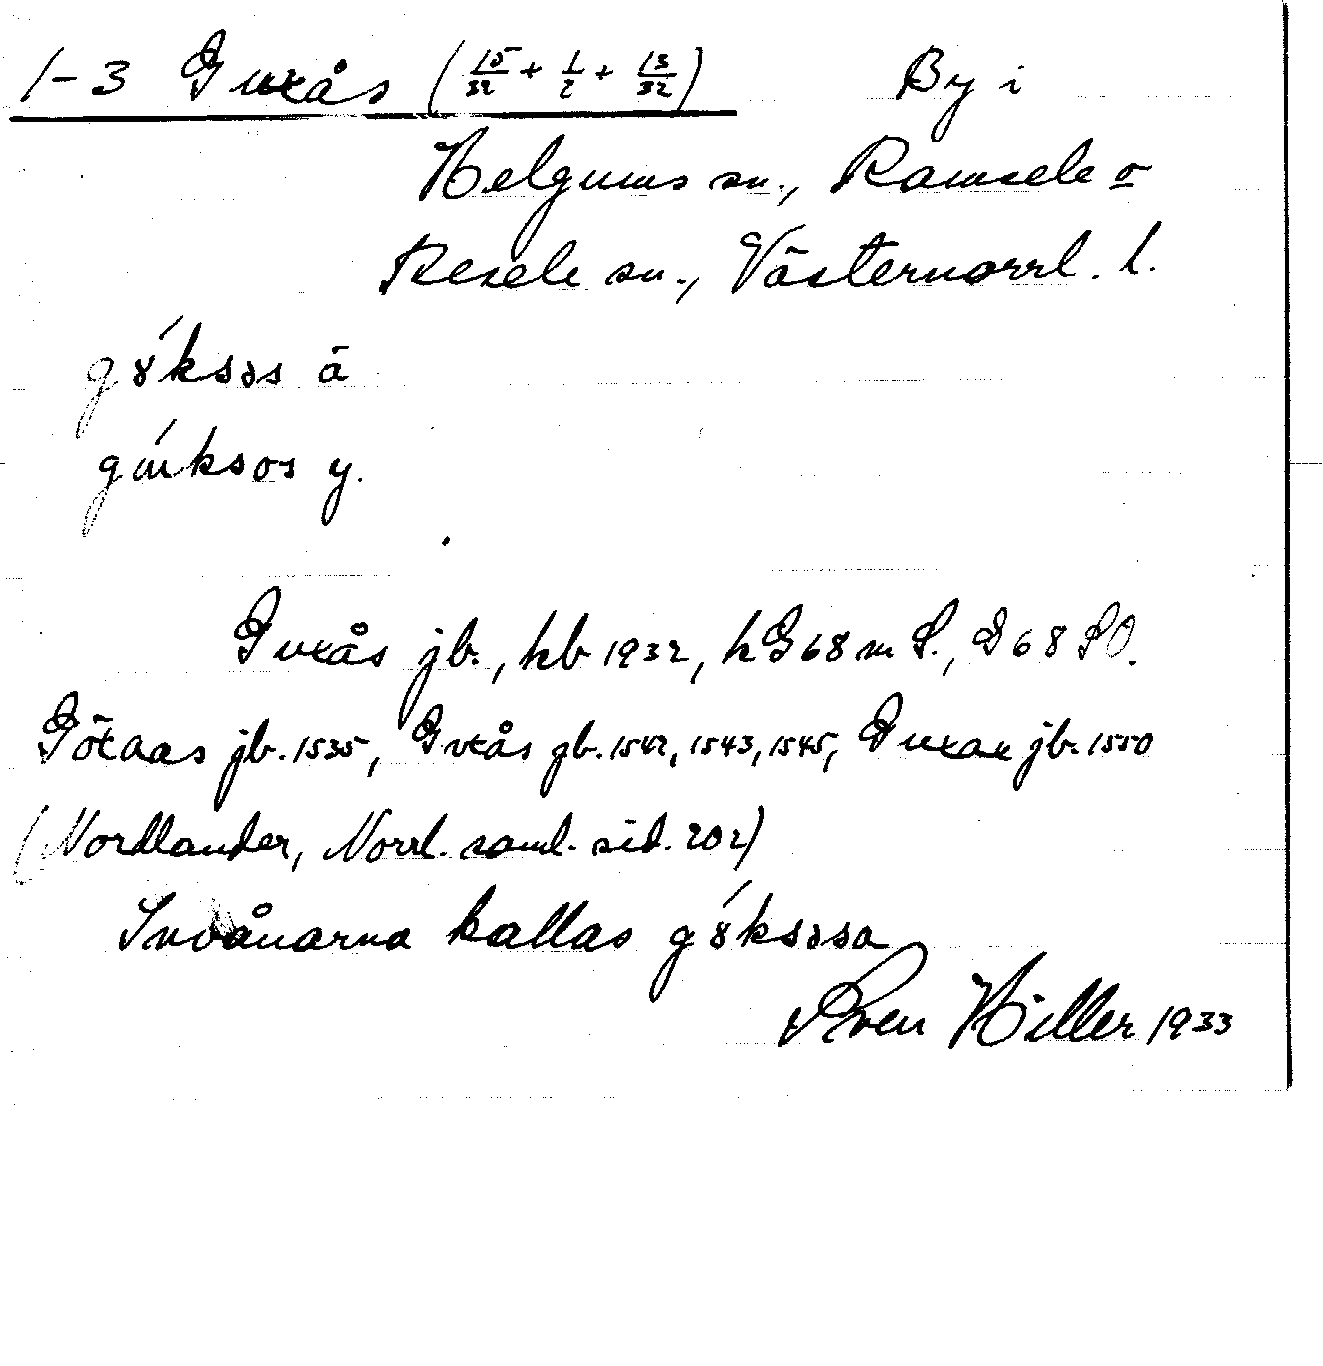 1-3 Guxås (15/32 + 1/2 + 13/32) By i
Helgums sn., Ramsele o
Resele sn., Västernorrl. l.
gɤ́ksəs ä
gúksos y.
Guxås jb., kb 1932, kG68 m S., G68 SO.
Göxaas jb. 1535, Gvxås gb. 1542, 1543, 1545, Guxax jb. 1550
(Nordlander, Norrl. saml. sid. 202)
Invånarna kallas gɤ́ksəsa
Sven Hiller 1933